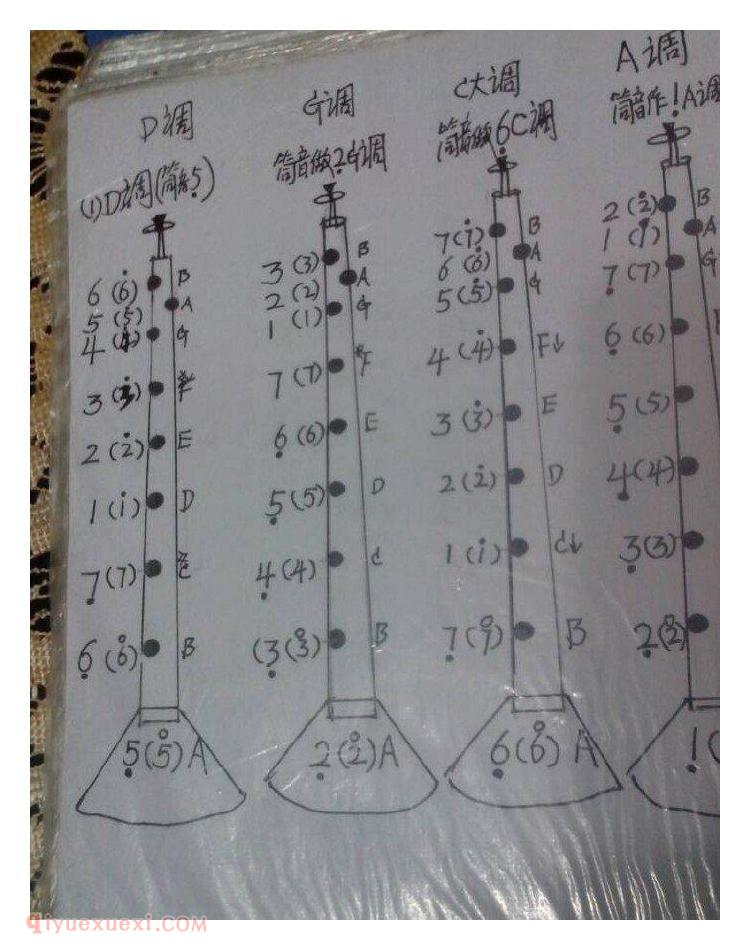 D调
(1)D调(筒音5̣)
6 (6̇) B
5 (5) A
4 (4̇) G
3 (3̇) #F
2 (2̇) E
1 (i) D
7̣ (7) #C
6̣ (6) B
5̣ (5) A
G调
筒音做2̣G调
3 (3) B
2 (2) A
1 (1) G
7 (7) #F
6̣ (6) E
5̣ (5) D
4̣ (4) C
(3̣ (3) B
2̣ (2) A
C大调
筒音做6̣C调
7 (7̇) B
6 (6̇) A
5 (5̇) G
4 (4̇) F↓
3 (3̇) E
2 (2̇) D
1 (i) C↓
7̣ (7) B
6̣ (6) A
A调
筒音作1̣A调
2 (2̇) B
1 (1̇) A
7̣ (7) G
6̣ (6)
5̣ (5)
4̣ (4)
3̣ (3)
2̣ (2)
1̣ (
qiyuexuexi.COM